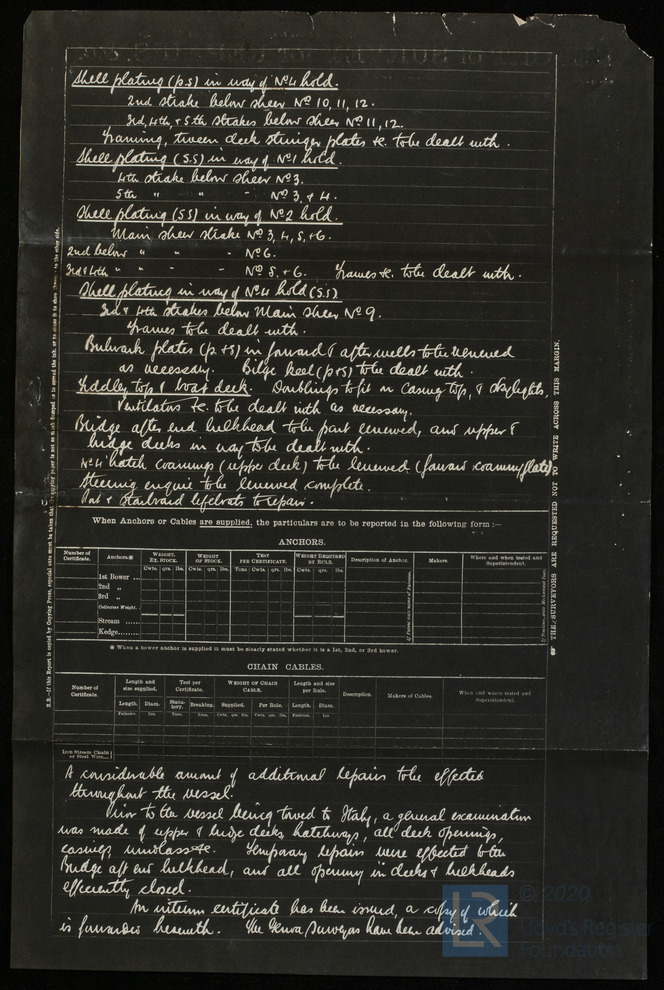 Shell plating (p.s) in way of No 4 hold.
2nd strake below sheer No 10, 11, 12.
3rd, 4th, & 5th strakes below sheer No 11, 12.
Framing, tween deck stringer plates &c. to be dealt with.
Shell plating (S.S) in way of No 1 hold.
4th strake below sheer No 3.
5th " " " No 3, & 4.
Shell plating (SS) in way of No 2 hold.
Main sheer strake No 3, 4, 5, & 6.
2nd below " " - No 6.
3rd & 4th " " " - No 5, & 6. Frames &c. to be dealt with.
Shell plating in way of No 4 hold (S.S)
3rd & 4th strakes below Main sheer No 9.
Frames to be dealt with.
Bulwark plates (p & s) in forward & after wells to be renewed
as necessary. Bilge keel (p & s) to be dealt with.
Fiddley top & boat deck. Doublings to fit on casing top, & skylights,
Ventilators &c. to be dealt with as necessary.
Bridge after end bulkhead to be part renewed, and upper &
bridge decks in way to be dealt with.
No 4 hatch coamings (upper deck) to be renewed (forward coaming plate)
Steering engine to be renewed complete.
Port & Starboard lifeboats to repair.
When Anchors or Cables are supplied, the particulars are to be reported in the following form :—
ANCHORS.
Number of Certificate. Anchors.* WEIGHT, EX. STOCK. WEIGHT OF STOCK. TEST PER CERTIFICATE. WEIGHT REQUIRED BY RULE. Description of Anchor. Makers. Where and when tested and Superintendent.
Cwts. qrs. lbs. Cwts. qrs. lbs. Tons Cwts. qrs. lbs. Cwts. qrs. lbs.
1st Bower ...
2nd "
3rd "
Collective Weight.
Stream ......
Kedge........
* When a bower anchor is supplied it must be clearly stated whether it is a 1st, 2nd, or 3rd bower.
CHAIN CABLES.
Number of Certificate. Length and size supplied. Test per Certificate. WEIGHT OF CHAIN CABLE. Length and size per Rule. Description. Makers of Cables. When and where tested and Superintendent.
Length. Diam. Statutory. Breaking. Supplied. Per Rule. Length. Diam.
Fathoms. Ins. Tons. Tons. Cwt. qrs. lbs. Cwt. qrs. lbs. Fathoms. Ins
Iron Stream Chain or Steel Wire...
A considerable amount of additional repairs to be effected
throughout the vessel.
Prior to the vessel being towed to Italy, a general examination
was made of upper & bridge decks, hatchways, all deck openings,
casings, windlass &c. Temporary repairs were effected to the
Bridge aft end bulkhead, and all opening in decks & bulkheads
efficiently closed.
An interim certificate has been issued, a copy of which
is forwarded herewith. The Genoa Surveyors have been advised.
THE SURVEYORS ARE REQUESTED NOT TO WRITE ACROSS THIS MARGIN.
© 2020
Lloyd's Register
Foundation
LR